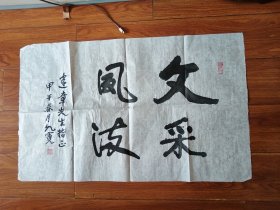 文采
風流
建章先生指正
甲午春月